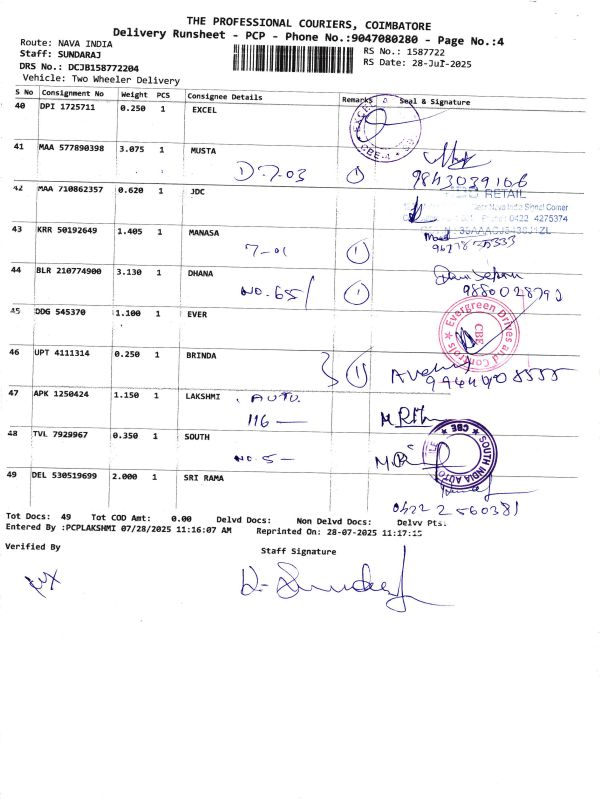 THE PROFESSIONAL COURIERS, COIMBATORE
Delivery Runsheet - PCP - Phone No.:9047080280 - Page No.:4
Route: NAVA INDIA
RS No.: 1587722
Staff: SUNDARAJ
RS Date: 28-Jul-2025
DRS No.: DCJB158772204
Vehicle: Two Wheeler Delivery
S No Consignment No Weight PCS Consignee Details Remarks Seal & Signature
40 DPI 1725711 0.250 1 EXCEL
41 MAA 577890398 3.075 1 MUSTA
D-7-03 1 9843039106
42 MAA 710862357 0.620 1 JDC
RETAIL
Nava India Signal Corner
0422 4275374
43 KRR 50192649 1.405 1 MANASA
7-01 1
44 BLR 210774900 3.130 1 DHANA
NO. 65/ 1
45 DDG 545370 1.100 1 EVER
Evergreen Drives and Controls
CBE
46 UPT 4111314 0.250 1 BRINDA
1
47 APK 1250424 1.150 1 LAKSHMI AUTO.
116 —
48 TVL 7929967 0.350 1 SOUTH
NO. 5 —
SOUTH INDIA AUTO
CBE
49 DEL 530519699 2.000 1 SRI RAMA
0422 2560381
Tot Docs: 49 Tot COD Amt: 0.00 Delvd Docs: Non Delvd Docs: Delvv Pts:
Entered By :PCPLAKSHMI 07/28/2025 11:16:07 AM Reprinted On: 28-07-2025 11:17:15
Verified By
Staff Signature